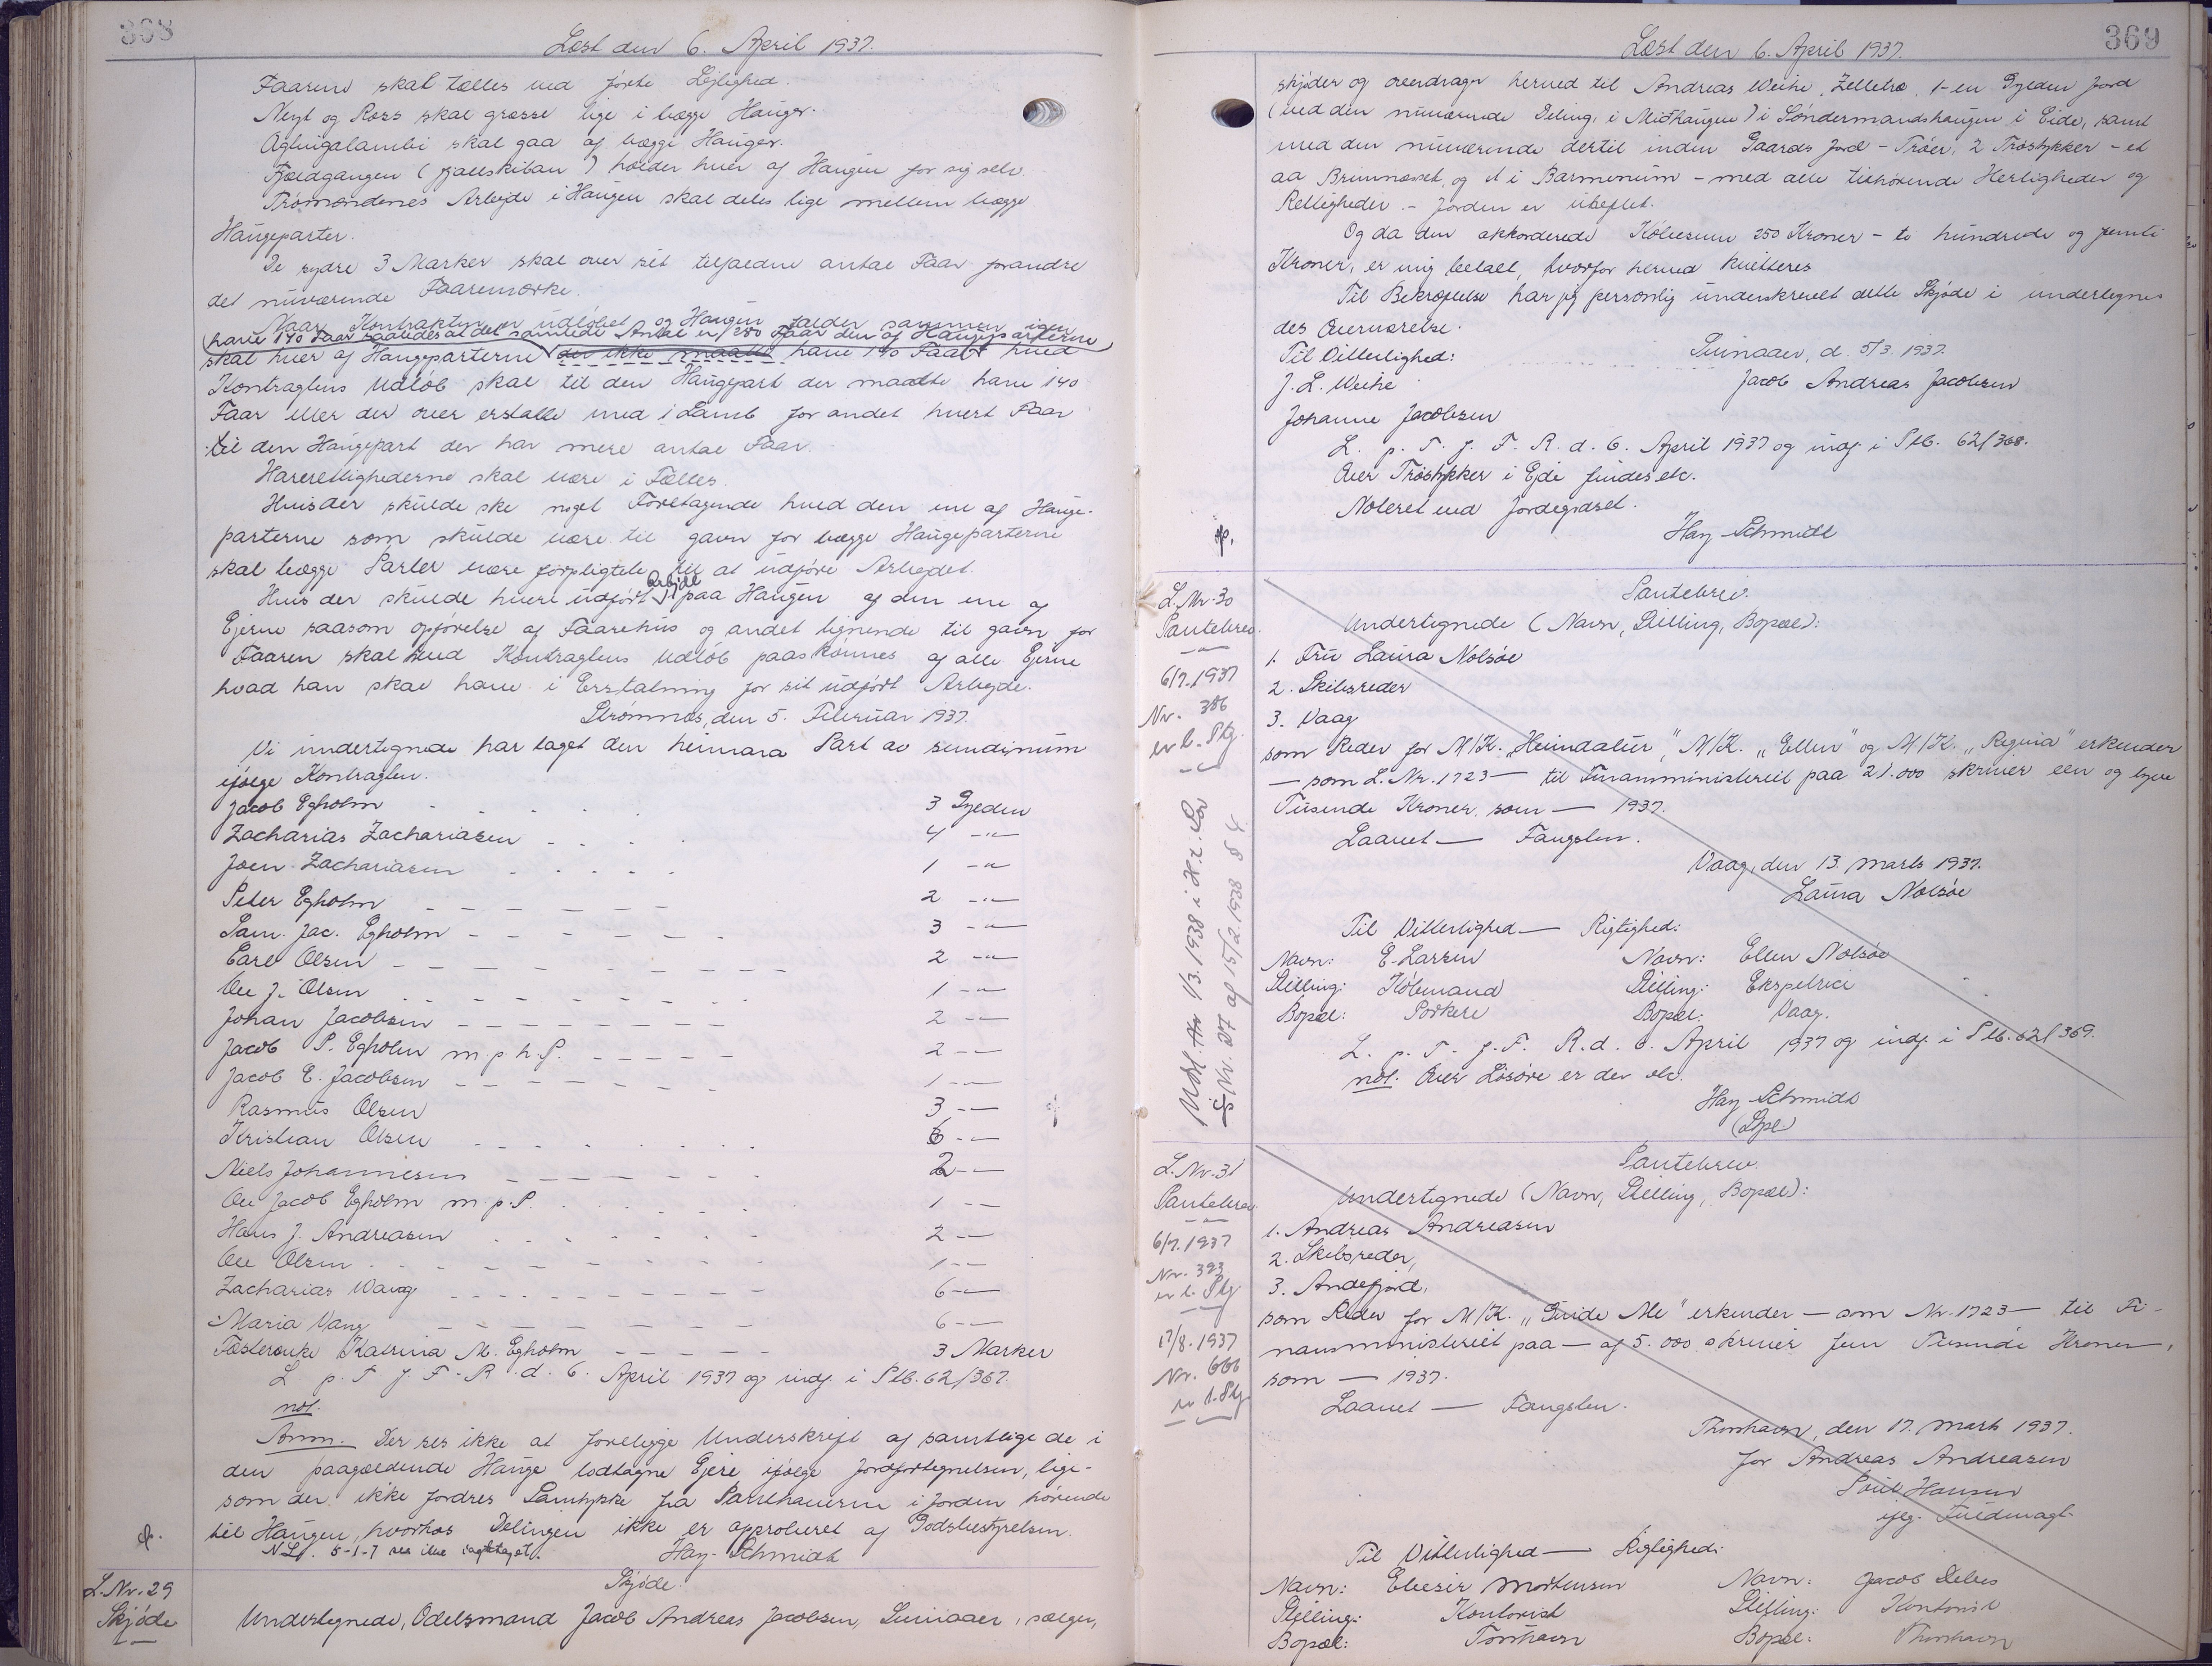 368
Læst den 6. April 1937.
Faarene skal tælles ved første Lejlighed.
Neyt og Ross skal græsse lige i begge Hauger.
skal gaa af begge Hauger.
Fjældgangen (fjallskiban) holder hver af Haugen for sig selv.
Trømændenes Arbejde i Haugen skal deles lige mellem begge
Haugeparter.
De sydre 3 Marker skal over sit antal Faar forandre
det nuværende Faaremærke.
Naar Kontrakten er udløbet og Haugen falder sammen igen
have 140 Faar saaledes at det samlede Antal er 280 Faar den af Haugeparterne
skal hver af Haugeparterne der ikke maatte have 140 Faar hved
Kontragtens Udløb skal til den Haugepart der maatte have 140
Faar eller der over erstatte med 1 Lamb for andet hvert Faar
til den Haugepart der har mere antal Faar.
Harerettighederne skal være i Fælles.
Hvis der skulde ske noget Foretagende hved den ene af Hauge-
parterne som skulde være til gavn for begge Haugeparterne
skal begge Parter være forpligtete til at udføre Arbejdet.
Hvis der skulde være udført Arbejde paa Haugen af den ene af
Ejerne saasom opførelse af Faarehus og andet lignende til gavn for
Faaren skal hved Kontragtens Udløb paaskønnes af alle Ejerne
hvad han skal have i Erstatning for sit udført Arbejde.
Strømnæs, den 5. Februar 1937.
Vi undertegnede har taget den heimara Part av sundinum
ifølge Kontragten.
Jacob Egholm 3 Gylden
Zacharias Zachariasen 4 -"-
Joen Zachariasen 1 -"-
Peter Egholm 2 -"-
Sam. Jac. Egholm 3 -"-
Carl Olsen 2 -"-
Ole J. Olsen 1 -"-
Johan Jacobsen 2 -"-
Jacob P. Egholm m.p.h.P. 2 -"-
Jacob E. Jacobsen 1 -"-
Rasmus Olsen 3 -"-
Kristian Olsen 6 -"-
Niels Johannesen 2 -"-
Ole Jacob Egholm m.p.P. 1 -"-
Hans J. Andreasen 2 -"-
Ole Olsen 1 -"-
Zacharias Vang 6 -"-
Maria Vang 6 -"-
Fæsterenke Katrina M. Egholm 3 Marker
L. p. T. f. F. R. d. 6. April 1937 og indf. i Ptb. 62/367.
not.
Anm. Der ses ikke at foreligge Underskrift af samtlige de i
den paagældende Hauge lodtagne Ejere ifølge Jordfortegnelsen, lige-
som der ikke fordres Samtykke fra Panthaverne i Jorden hørende
til Haugen, hvorhos Delingen ikke er approberet af Godsbestyrelsen.
NL. 5-1-7 ses ikke iagttaget.
Hay-Schmidt
L.Nr. 29
Skjøde
Skjøde.
Undertegnede, Odelsmand Jacob Andreas Jacobsen, Suinaaer, sælger,
369
Læst den 6. April 1937.
skjøder og overdrager herved til Andreas Weihe, Zelletræ, 1-en Gylden Jord
(ved den nuværende Deling, i Miðhaugen) i Søndermandshaugen i Eide, samt
med den nuværende dertil inden Gaards Jord - Trøer, 2 Trøstykker - et
aa Brunnæset, og et i Barmenum - med alle tilhørende Herligheder og
Rettigheder. - Jorden er ubeheftet.
Og da den akkorderede Købesum 250 Kroner - to hundrede og femti
Kroner, er mig betalt, hvorfor herved kvitteres
Til Bekræftelse har jeg personlig underskrevet dette Skjøde i undertegne-
des Overværelse.
Til Vitterlighed:
Suinaaer, d. 5/3. 1937.
J. L. Weihe
Jacob Andreas Jacobsen
Johanne Jacobsen
L. p. T. f. F. R. d. 6. April 1937 og indf. i Ptb. 62/368.
Over Trøstykker i Eje findes etc.
Noteret ved Jordegodset.
Hay-Schmidt
L.Nr. 30
Pantebrev.
6/7. 1937
Nr. 386
er b. Ptg.
Udsl. iflg. 1/3. 1938 i H. t. Lov
Nr. 27 af 15/2. 1938 § 4.
Pantebrev.
Undertegnede (Navn, Stilling, Bopæl):
1. Fru Laura Nolsøe
2. Skibsreder
3. Vaag
som Reder for M/K. „Heimdalur", M/K. „Ellen" og M/K. „Regina" erkender
— som L. Nr. 1723 — til Finansministeriet paa 21.000 skriver een og tyve
Tusende Kroner, som — 1937.
Laanet — Fangsten.
Vaag, den 13. Marts 1937.
Laura Nolsøe
Til Vitterlighed — Rigtighed:
Navn: E. Larsen Navn: Ellen Nolsøe
Stilling: Købmand Stilling: Ekspetrice
Bopæl: Porkere Bopæl: Vaag.
L. p. T. f. F. R. d. 6. April 1937 og indf. i Ptb. 62/369.
not. Over Løsøre er der etc.
Hay-Schmidt
L.Nr. 31
Pantebrev
6/7. 1937
Nr. 393
er b. Ptg
17/8. 1937
Nr. 666
Pantebrev.
Undertegnede (Navn, Stilling, Bopæl):
1. Andreas Andreasen
2. Skibsreder,
3. Andefjord,
som Reder for M/K. „Guide Me" erkender — som Nr. 1723 — til Fi-
nansministeriet paa — af 5.000 skriver fem Tusinde Kroner —,
som — 1937.
Laanet — Fangsten.
Thorshavn, den 17. Marts 1937.
for Andreas Andreasen
Poul Hansen
iflg. Fuldmagt.
Til Vitterlighed — Rigtighed:
Navn: Elieser Mortensen Navn: Jacob Debes
Stilling: Kontorist Stilling: Kontorist
Bopæl: Torshavn Bopæl: Thorshavn